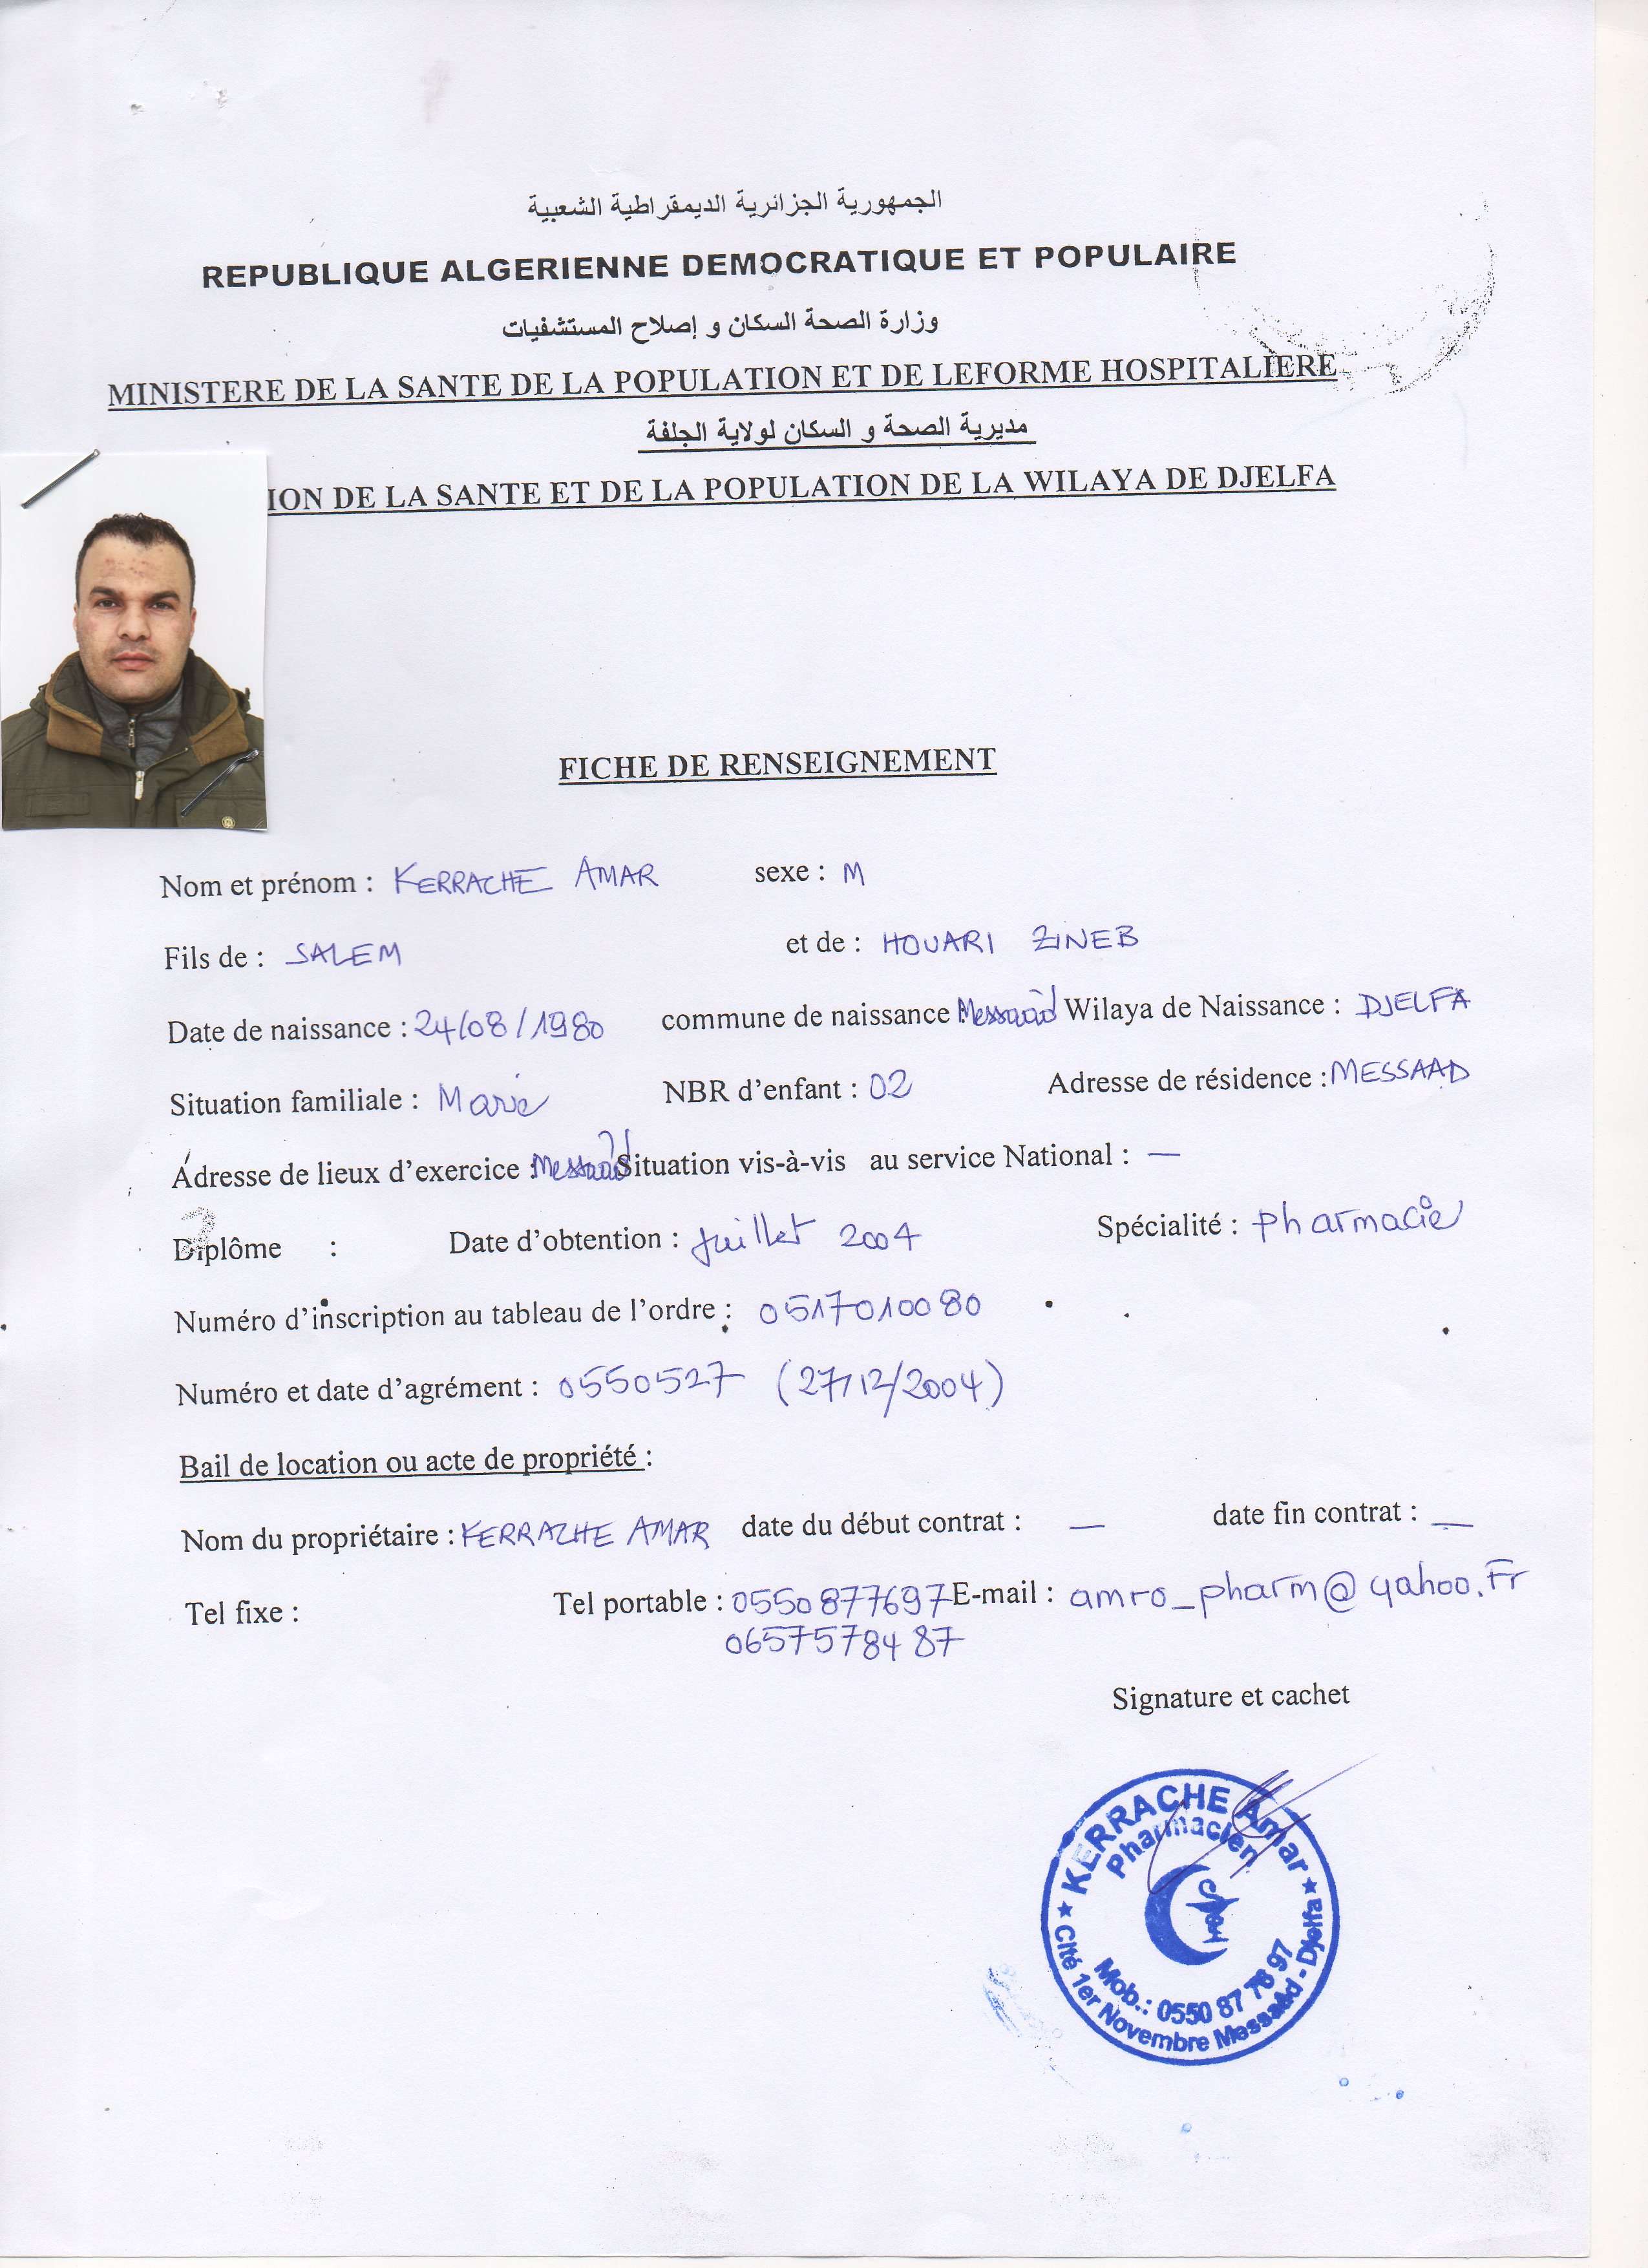 الجمهورية الجزائرية الديمقراطية الشعبية
REPUBLIQUE ALGERIENNE DEMOCRATIQUE ET POPULAIRE
وزارة الصحة السكان و إصلاح المستشفيات
MINISTERE DE LA SANTE DE LA POPULATION ET DE LEFORME HOSPITALIERE
مديرية الصحة و السكان لولاية الجلفة
ION DE LA SANTE ET DE LA POPULATION DE LA WILAYA DE DJELFA
FICHE DE RENSEIGNEMENT
Nom et prénom : KERRACHE AMAR sexe : M
Fils de : SALEM et de : HOUARI ZINEB
Date de naissance : 24/08/1980 commune de naissance : Messaad Wilaya de Naissance : DJELFA
Situation familiale : Marié NBR d'enfant : 02 Adresse de résidence : MESSAAD
Adresse de lieux d'exercice : Messaad Situation vis-à-vis au service National : —
Diplôme : Date d'obtention : Juillet 2004 Spécialité : pharmacie
Numéro d'inscription au tableau de l'ordre : 0517010080
Numéro et date d'agrément : 0550527 (27/12/2004)
Bail de location ou acte de propriété :
Nom du propriétaire : KERRACHE AMAR date du début contrat : — date fin contrat : —
Tel fixe : Tel portable : 0550877697 E-mail : amro_pharm@yahoo.Fr
0657578487
Signature et cachet
KERRACHE Amar
Pharmacien
Mob.: 0550 87 76 97
Cité 1er Novembre Messaâd - Djelfa